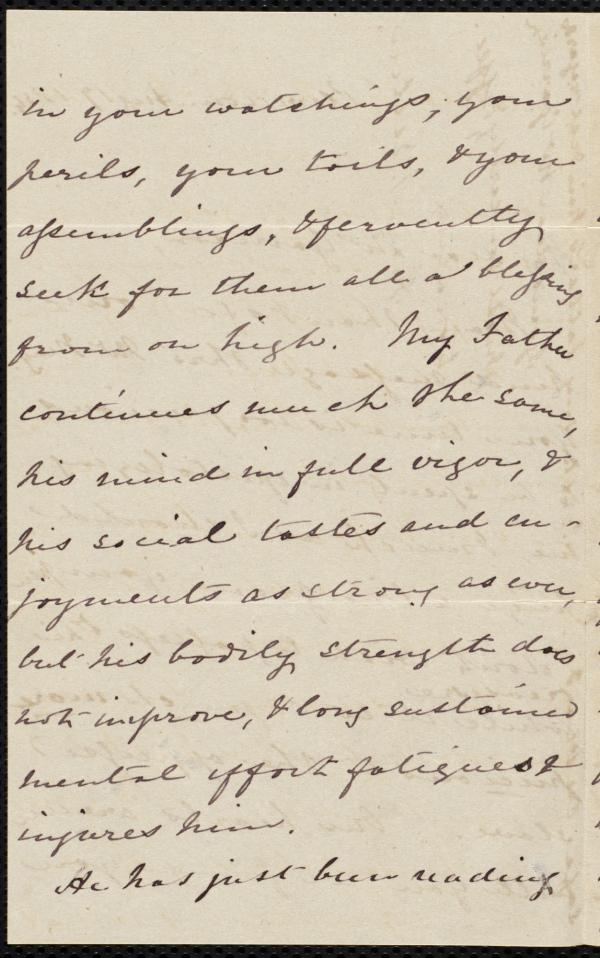 in your watchings, your
perils, your toils, & your
assemblings, & fervently
seek for them all a blessing
from on high. My Father
continues much the same,
his mind in full vigor, &
his social tastes and en-
joyments as strong as ever,
but his bodily strength does
not improve, & long sustained
mental effort fatigues &
injures him.
He has just been reading